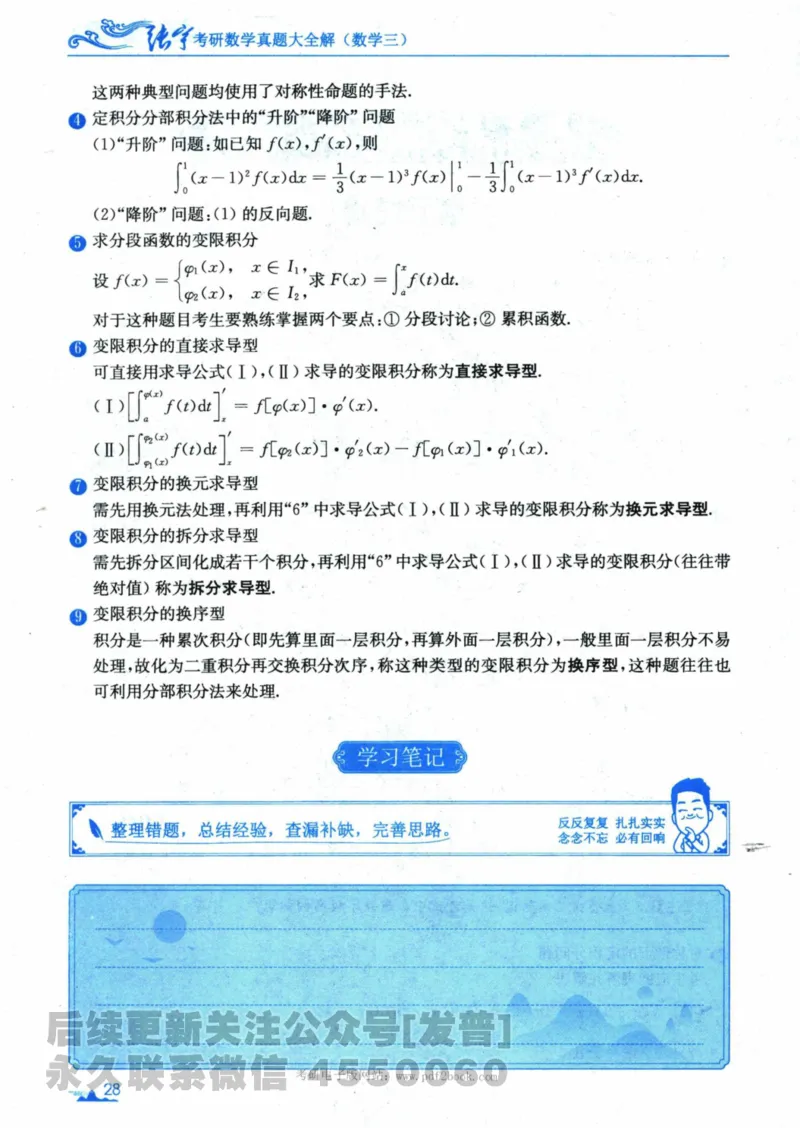 张宇考研数学真题大全解（数学三）
这两种典型问题均使用了对称性命题的手法.
④ 定积分分部积分法中的“升阶”“降阶”问题
(1)“升阶”问题:如已知 f(x),f′(x),则
∫₀¹(x−1)²f(x)dx = 1/3(x−1)³f(x)|₀¹ − 1/3∫₀¹(x−1)³f′(x)dx.
(2)“降阶”问题:(1) 的反向题.
⑤ 求分段函数的变限积分
设 f(x) = {φ₁(x), x∈I₁, φ₂(x), x∈I₂, 求 F(x) = ∫ₐˣf(t)dt.
对于这种题目考生要熟练掌握两个要点:① 分段讨论;② 累积函数.
⑥ 变限积分的直接求导型
可直接用求导公式(Ⅰ),(Ⅱ) 求导的变限积分称为直接求导型.
(Ⅰ)[∫_a^{φ(x)} f(t)dt]′_x = f[φ(x)]·φ′(x).
(Ⅱ)[∫_{φ₁(x)}^{φ₂(x)} f(t)dt]′_x = f[φ₂(x)]·φ′₂(x)−f[φ₁(x)]·φ′₁(x).
⑦ 变限积分的换元求导型
需先用换元法处理,再利用“6”中求导公式(Ⅰ),(Ⅱ) 求导的变限积分称为换元求导型.
⑧ 变限积分的拆分求导型
需先拆分区间化成若干个积分,再利用“6”中求导公式(Ⅰ),(Ⅱ) 求导的变限积分(往往带
绝对值) 称为拆分求导型.
⑨ 变限积分的换序型
积分是一种累次积分(即先算里面一层积分,再算外面一层积分),一般里面一层积分不易
处理,故化为二重积分再交换积分次序,称这种类型的变限积分为换序型,这种题往往也
可利用分部积分法来处理.
学习笔记
整理错题，总结经验，查漏补缺，完善思路。
反反复复 扎扎实实
念念不忘 必有回响
后续更新关注公众号[发普]
永久联系微信 4550060
考研电子版网站: www.pdf2book.com
28